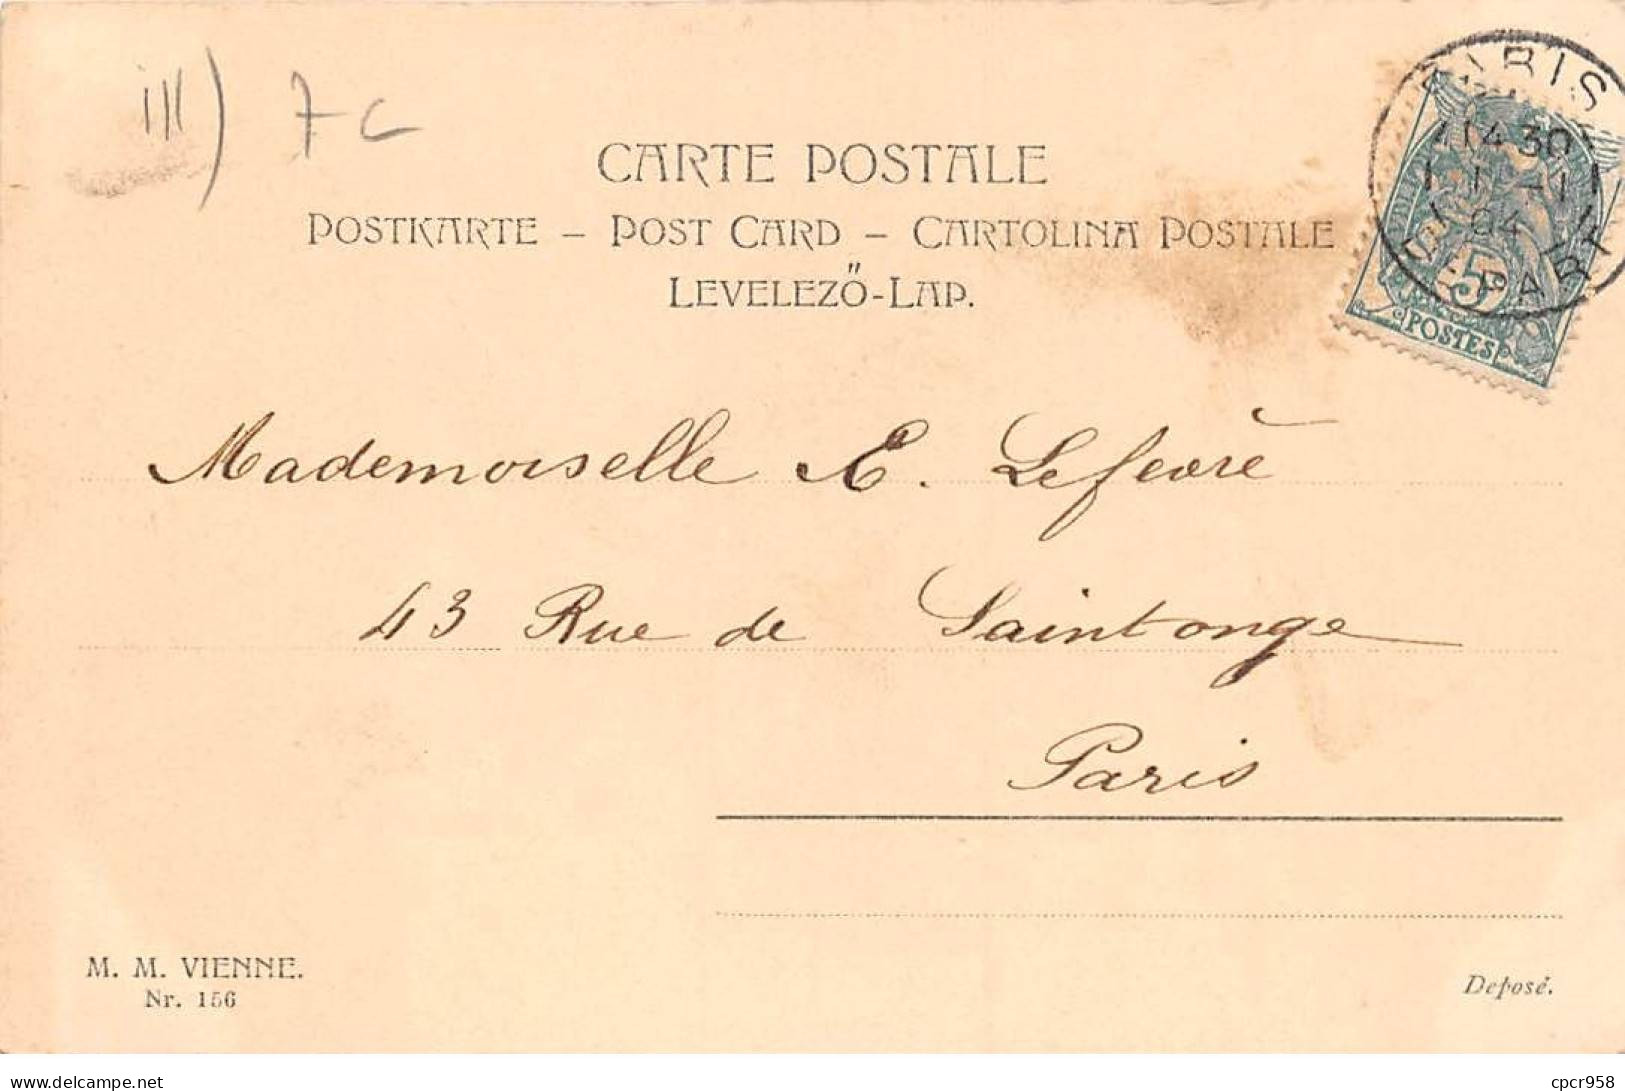 ill) 7 c
CARTE POSTALE
POSTKARTE – POST CARD – CARTOLINA POSTALE
LEVELEZŐ-LAP.
PARIS
14 30
1 -1
04
DEPART
5
POSTES
Mademoiselle E. Lefèvre
43 Rue de Saintonge
Paris
M. M. VIENNE.
Nr. 156
Deposé.
delcampe.net
cpcr958